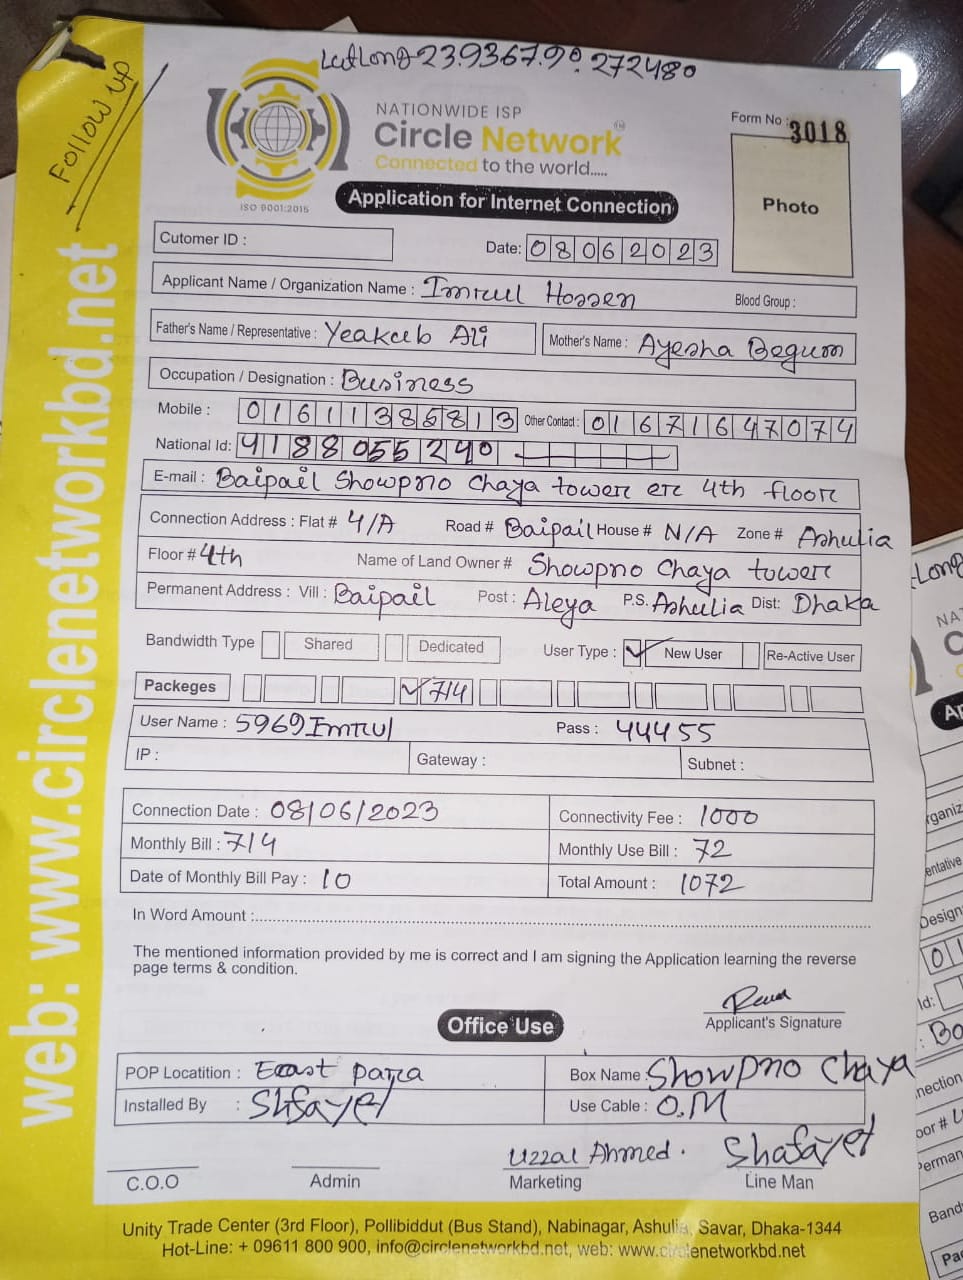 LatLong-23.93679.90.272480
FOLLOW UP
NATIONWIDE ISP
Circle Network
Connected to the world.....
ISO 9001:2015
Form No : 3018
Photo
Application for Internet Connection
Cutomer ID :
Date: 08062023
Applicant Name / Organization Name : Imrul Hossen Blood Group :
Father's Name / Representative : Yeakub Ali Mother's Name : Ayesha Begum
Occupation / Designation : Business
Mobile : 01611386813 Other Contact : 01671647074
National Id: 4188055240
E-mail : Baipail Showpno Chaya tower er 4th floor
Connection Address : Flat # 4/A Road # Baipail House # N/A Zone # Ashulia
Floor # 4th Name of Land Owner # Showpno Chaya tower
Permanent Address : Vill : Baipail Post : Aleya P.S. Ashulia Dist: Dhaka
Bandwidth Type Shared Dedicated User Type : New User Re-Active User
Packeges 714
User Name : 5969Imrul Pass : 44455
IP : Gateway : Subnet :
Connection Date : 08/06/2023 Connectivity Fee : 1000
Monthly Bill : 714 Monthly Use Bill : 72
Date of Monthly Bill Pay : 10 Total Amount : 1072
In Word Amount :
The mentioned information provided by me is correct and I am signing the Application learning the reverse
page terms & condition.
Applicant's Signature
Office Use
POP Locatition : East para Box Name : Showpno Chaya
Installed By : Shfayet Use Cable : O.M
Uzzal Ahmed. Shafayet
C.O.O Admin Marketing Line Man
Unity Trade Center (3rd Floor), Pollibiddut (Bus Stand), Nabinagar, Ashulia, Savar, Dhaka-1344
Hot-Line: + 09611 800 900, info@circlenetworkbd.net, web: www.circlenetworkbd.net
web: www.circlenetworkbd.net